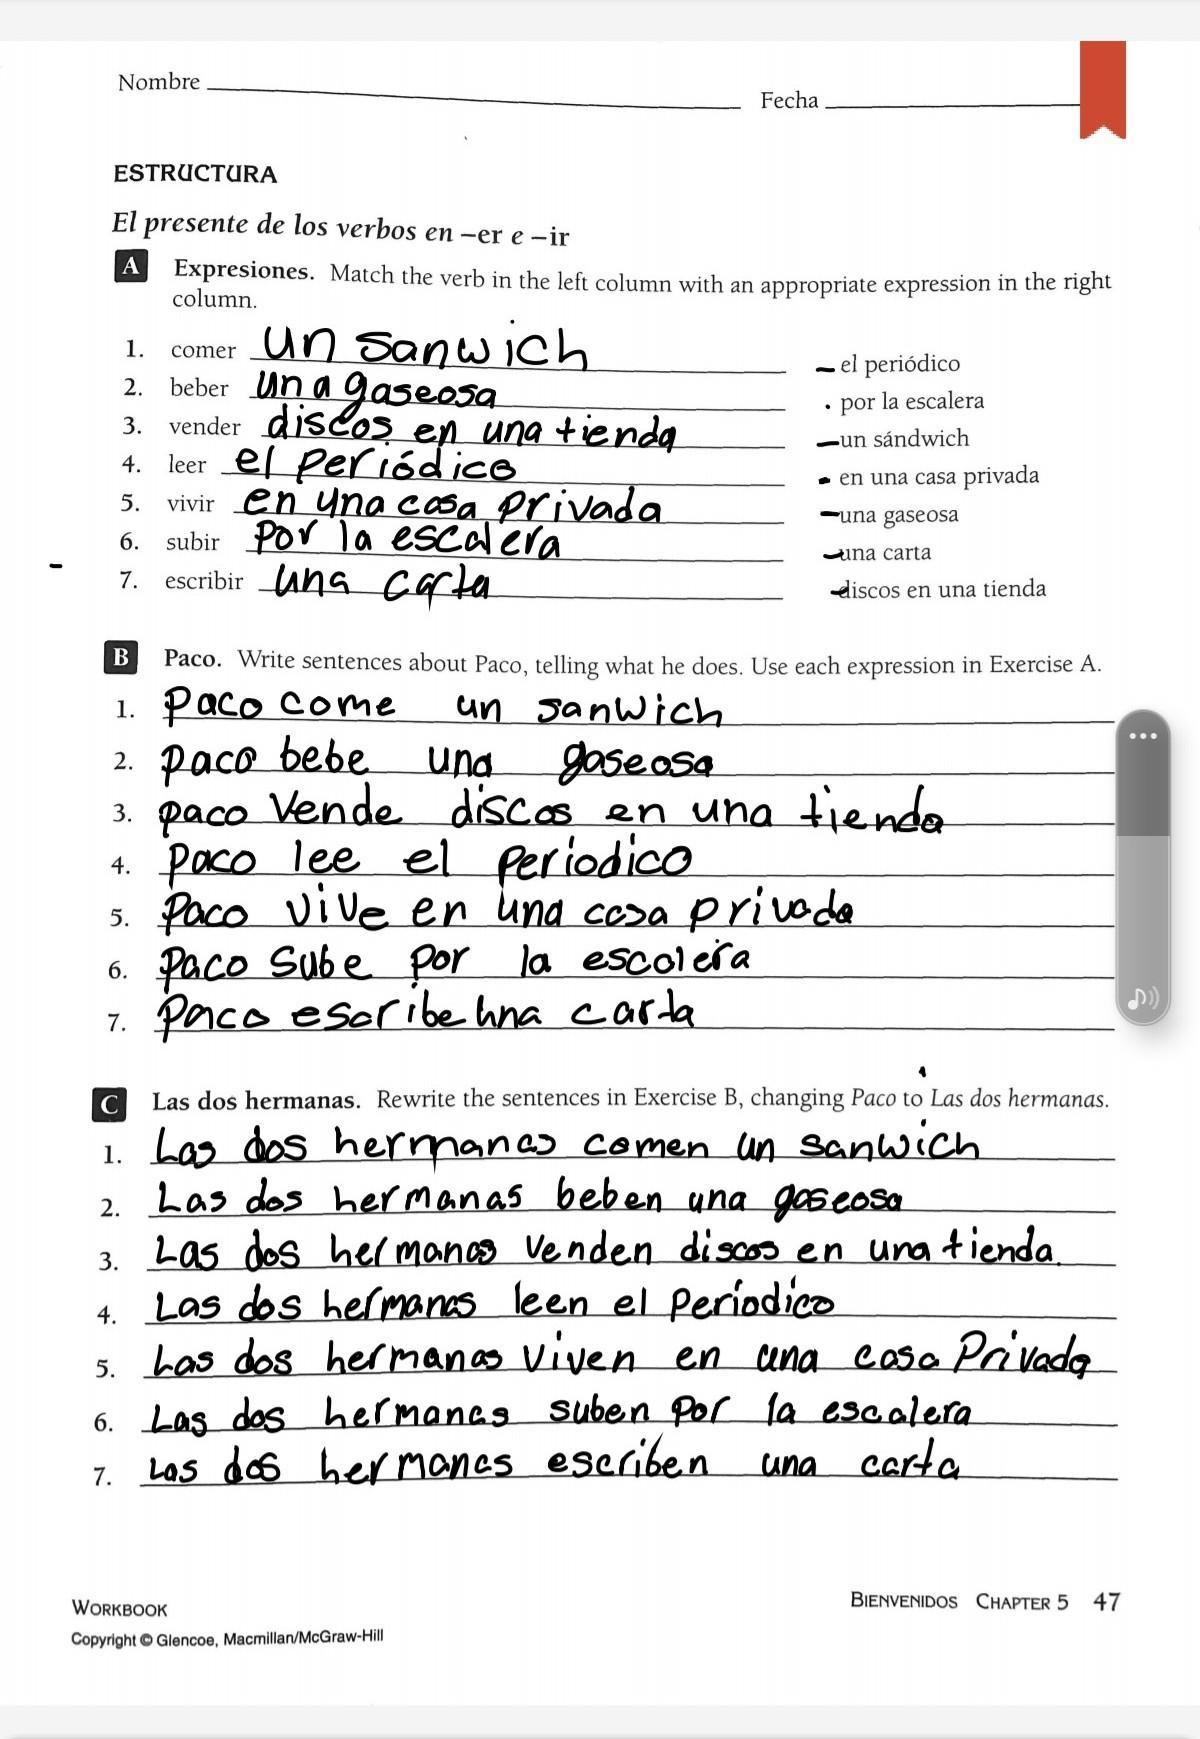 Nombre
Fecha
ESTRUCTURA
El presente de los verbos en –er e –ir
A Expresiones. Match the verb in the left column with an appropriate expression in the right
column.
1. comer un sanwich
el periódico
2. beber una gaseosa
por la escalera
3. vender discos en una tienda
un sándwich
4. leer el periódico
en una casa privada
5. vivir en una casa privada
una gaseosa
6. subir por la escalera
una carta
7. escribir una carta
discos en una tienda
B Paco. Write sentences about Paco, telling what he does. Use each expression in Exercise A.
1. Paco come un sanwich
2. paco bebe una gaseosa
3. paco vende discos en una tienda
4. Paco lee el periodico
5. Paco vive en una casa privada
6. Paco sube por la escalera
7. Paco escribe una carta
C Las dos hermanas. Rewrite the sentences in Exercise B, changing Paco to Las dos hermanas.
1. Las dos hermanas comen un sanwich
2. Las dos hermanas beben una gaseosa
3. Las dos hermanas venden discos en una tienda.
4. Las dos hermanas leen el periodico
5. Las dos hermanas viven en una casa privada
6. Las dos hermanas suben por la escalera
7. Las dos hermanas escriben una carta
WORKBOOK
BIENVENIDOS CHAPTER 5 47
Copyright © Glencoe, Macmillan/McGraw-Hill